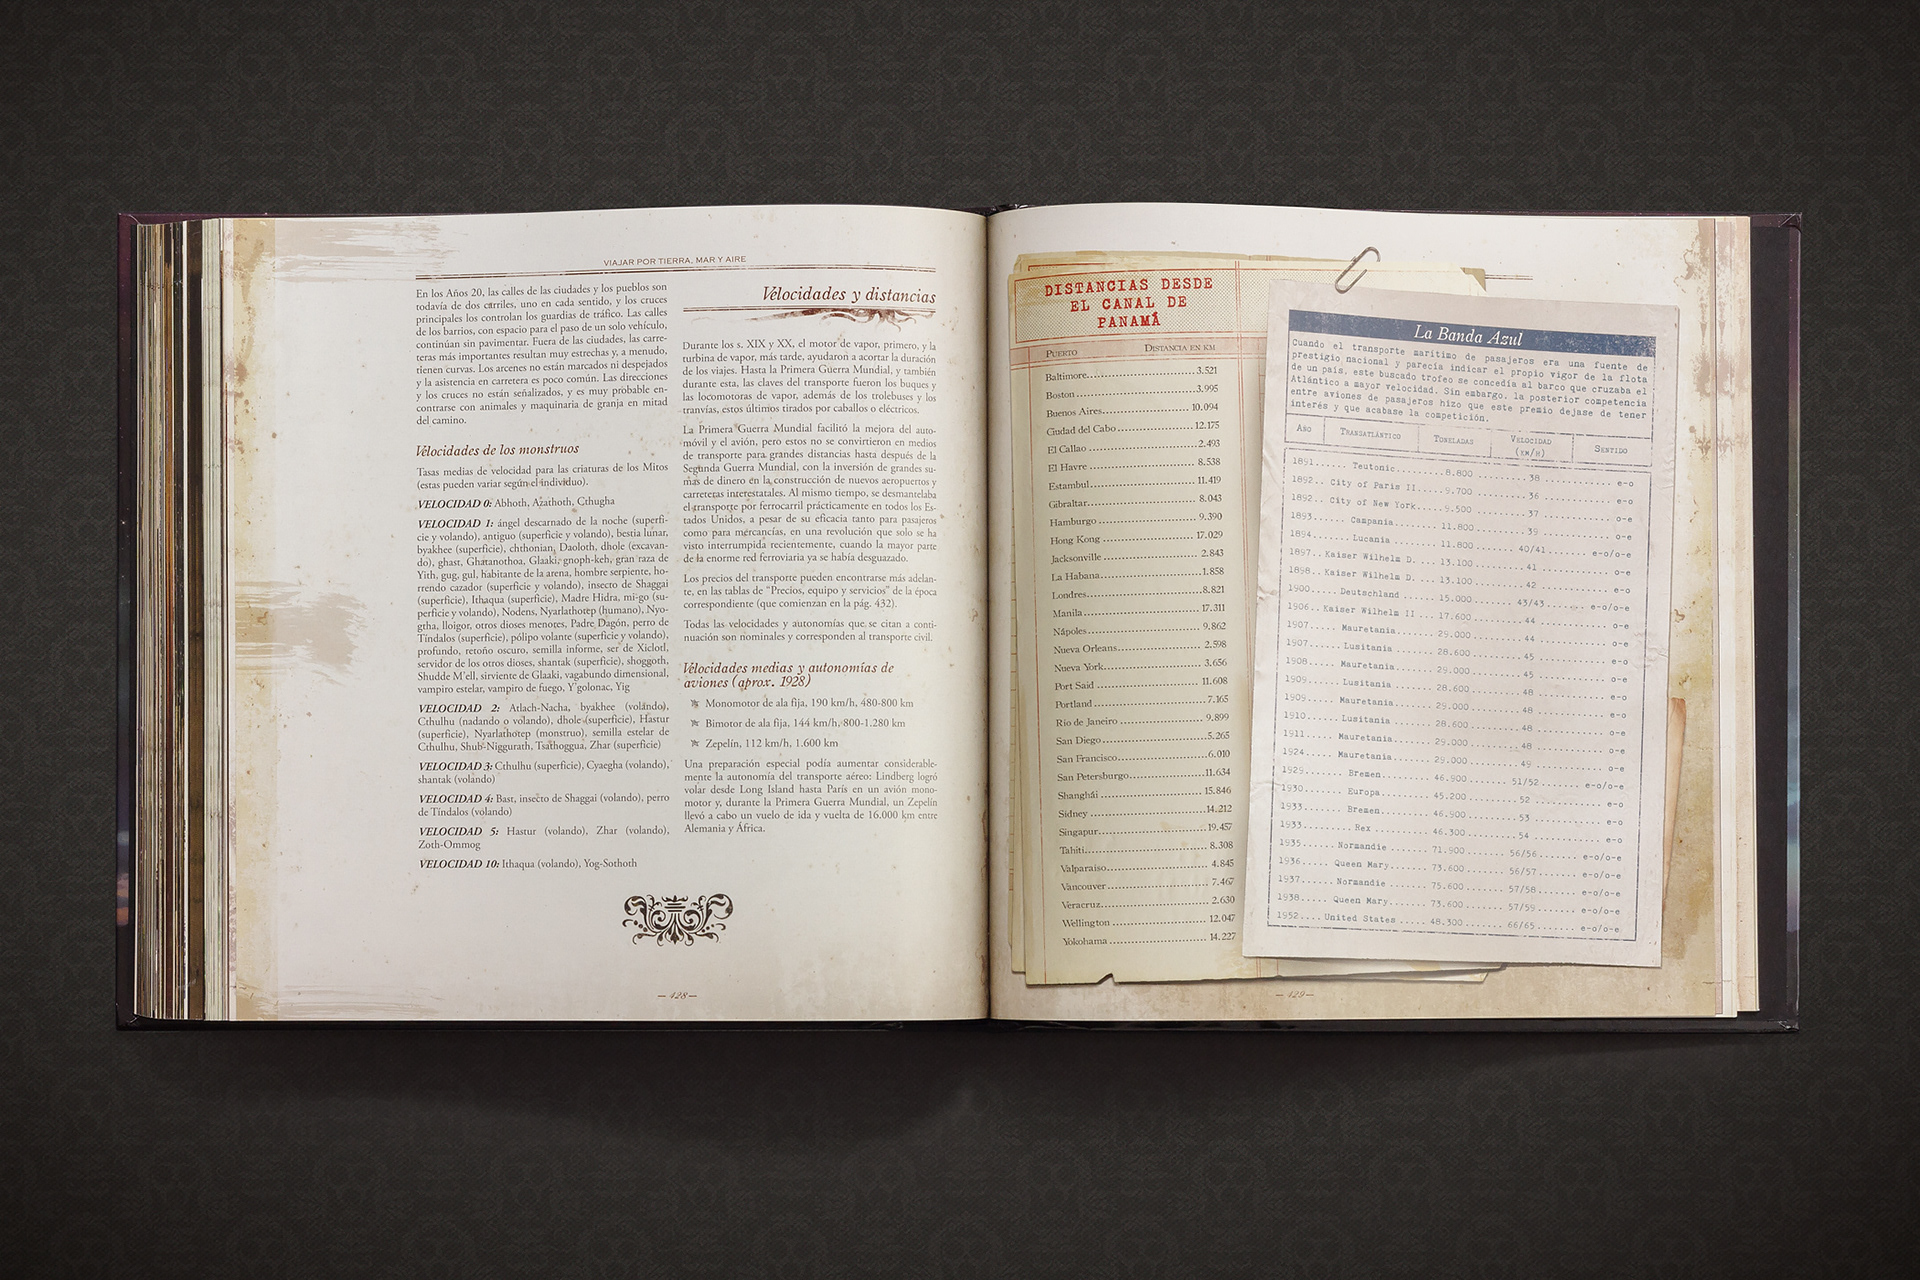 VIAJAR POR TIERRA, MAR Y AIRE
En los Años 20, las calles de las ciudades y los pueblos son
todavía de dos carriles, uno en cada sentido, y los cruces
principales los controlan los guardias de tráfico. Las calles
de los barrios, con espacio para el paso de un solo vehículo,
continúan sin pavimentar. Fuera de las ciudades, las carre-
teras más importantes resultan muy estrechas y, a menudo,
tienen curvas. Los arcenes no están marcados ni despejados
y la asistencia en carretera es poco común. Las direcciones
y los cruces no están señalizados, y es muy probable en-
contrarse con animales y maquinaria de granja en mitad
del camino.
Velocidades de los monstruos
Tasas medias de velocidad para las criaturas de los Mitos
(estas pueden variar según el individuo).
VELOCIDAD 0: Abhoth, Azathoth, Cthugha
VELOCIDAD 1: ángel descarnado de la noche (superfi-
cie y volando), antiguo (superficie y volando), bestia lunar,
byakhee (superficie), chthonian, Daoloth, dhole (excavan-
do), ghast, Ghatanothoa, Glaaki, gnoph-keh, gran raza de
Yith, gug, gul, habitante de la arena, hombre serpiente, ho-
rrendo cazador (superficie y volando), insecto de Shaggai
(superficie), Ithaqua (superficie), Madre Hidra, mi-go (su-
perficie y volando), Nodens, Nyarlathotep (humano), Nyo-
gtha, lloigor, otros dioses menores, Padre Dagón, perro de
Tíndalos (superficie), pólipo volante (superficie y volando),
profundo, retoño oscuro, semilla informe, ser de Xiclotl,
servidor de los otros dioses, shantak (superficie), shoggoth,
Shudde M'ell, sirviente de Glaaki, vagabundo dimensional,
vampiro estelar, vampiro de fuego, Y'golonac, Yig
VELOCIDAD 2: Atlach-Nacha, byakhee (volando),
Cthulhu (nadando o volando), dhole (superficie), Hastur
(superficie), Nyarlathotep (monstruo), semilla estelar de
Cthulhu, Shub-Niggurath, Tsathoggua, Zhar (superficie)
VELOCIDAD 3: Cthulhu (superficie), Cyaegha (volando),
shantak (volando)
VELOCIDAD 4: Bast, insecto de Shaggai (volando), perro
de Tíndalos (volando)
VELOCIDAD 5: Hastur (volando), Zhar (volando),
Zoth-Ommog
VELOCIDAD 10: Ithaqua (volando), Yog-Sothoth
Velocidades y distancias
Durante los s. XIX y XX, el motor de vapor, primero, y la
turbina de vapor, más tarde, ayudaron a acortar la duración
de los viajes. Hasta la Primera Guerra Mundial, y también
durante esta, las claves del transporte fueron los buques y
las locomotoras de vapor, además de los trolebuses y los
tranvías, estos últimos tirados por caballos o eléctricos.
La Primera Guerra Mundial facilitó la mejora del auto-
móvil y el avión, pero estos no se convirtieron en medios
de transporte para grandes distancias hasta después de la
Segunda Guerra Mundial, con la inversión de grandes su-
mas de dinero en la construcción de nuevos aeropuertos y
carreteras interestatales. Al mismo tiempo, se desmantelaba
el transporte por ferrocarril prácticamente en todos los Es-
tados Unidos, a pesar de su eficacia tanto para pasajeros
como para mercancías, en una revolución que solo se ha
visto interrumpida recientemente, cuando la mayor parte
de la enorme red ferroviaria ya se había desguazado.
Los precios del transporte pueden encontrarse más adelan-
te, en las tablas de "Precios, equipo y servicios" de la época
correspondiente (que comienzan en la pág. 432).
Todas las velocidades y autonomías que se citan a conti-
nuación son nominales y corresponden al transporte civil.
Velocidades medias y autonomías de
aviones (aprox. 1928)
Monomotor de ala fija, 190 km/h, 480-800 km
Bimotor de ala fija, 144 km/h, 800-1.280 km
Zepelín, 112 km/h, 1.600 km
Una preparación especial podía aumentar considerable-
mente la autonomía del transporte aéreo: Lindberg logró
volar desde Long Island hasta París en un avión mono-
motor y, durante la Primera Guerra Mundial, un Zepelín
llevó a cabo un vuelo de ida y vuelta de 16.000 km entre
Alemania y África.
— 428 —
DISTANCIAS DESDE
EL CANAL DE
PANAMÁ
PUERTO DISTANCIA EN KM
Baltimore 3.521
Boston 3.995
Buenos Aires 10.094
Ciudad del Cabo 12.175
El Callao 2.493
El Havre 8.538
Estambul 11.419
Gibraltar 8.043
Hamburgo 9.390
Hong Kong 17.029
Jacksonville 2.843
La Habana 1.858
Londres 8.821
Manila 17.311
Nápoles 9.862
Nueva Orleans 2.598
Nueva York 3.656
Port Said 11.608
Portland 7.165
Río de Janeiro 9.899
San Diego 5.265
San Francisco 6.010
San Petersburgo 11.634
Shanghái 15.846
Sídney 14.212
Singapur 19.457
Tahití 8.308
Valparaíso 4.845
Vancouver 7.467
Veracruz 2.630
Wellington 12.047
Yokohama 14.227
La Banda Azul
Cuando el transporte marítimo de pasajeros era una fuente de
prestigio nacional y parecía indicar el propio vigor de la flota
de un país, este buscado trofeo se concedía al barco que cruzaba el
Atlántico a mayor velocidad. Sin embargo, la posterior competencia
entre aviones de pasajeros hizo que este premio dejase de tener
interés y que acabase la competición.
AÑO TRANSATLÁNTICO TONELADAS VELOCIDAD (KM/H) SENTIDO
1891 Teutonic 8.800 38 e-o
1892 City of Paris II 9.700 36 e-o
1892 City of New York 9.500 37 o-e
1893 Campania 11.800 39 o-e
1894 Lucania 11.800 40/41 e-o/o-e
1897 Kaiser Wilhelm D. 13.100 41 o-e
1898 Kaiser Wilhelm D. 13.100 42 e-o
1900 Deutschland 15.000 43/43 e-o/o-e
1906 Kaiser Wilhelm II 17.600 44 o-e
1907 Mauretania 29.000 44 o-e
1907 Lusitania 28.600 45 e-o
1908 Mauretania 29.000 45 o-e
1909 Lusitania 28.600 48 e-o
1909 Mauretania 29.000 48 e-o
1910 Lusitania 28.600 48 o-e
1911 Mauretania 29.000 48 o-e
1924 Mauretania 29.000 49 o-e
1929 Bremen 46.900 51/52 e-o/o-e
1930 Europa 45.200 52 e-o
1933 Bremen 46.900 53 e-o
1933 Rex 46.300 54 e-o
1935 Normandie 71.900 56/56 e-o/o-e
1936 Queen Mary 73.600 56/57 e-o/o-e
1937 Normandie 75.600 57/58 e-o/o-e
1938 Queen Mary 73.600 57/59 e-o/o-e
1952 United States 48.300 66/65 e-o/o-e
— 429 —